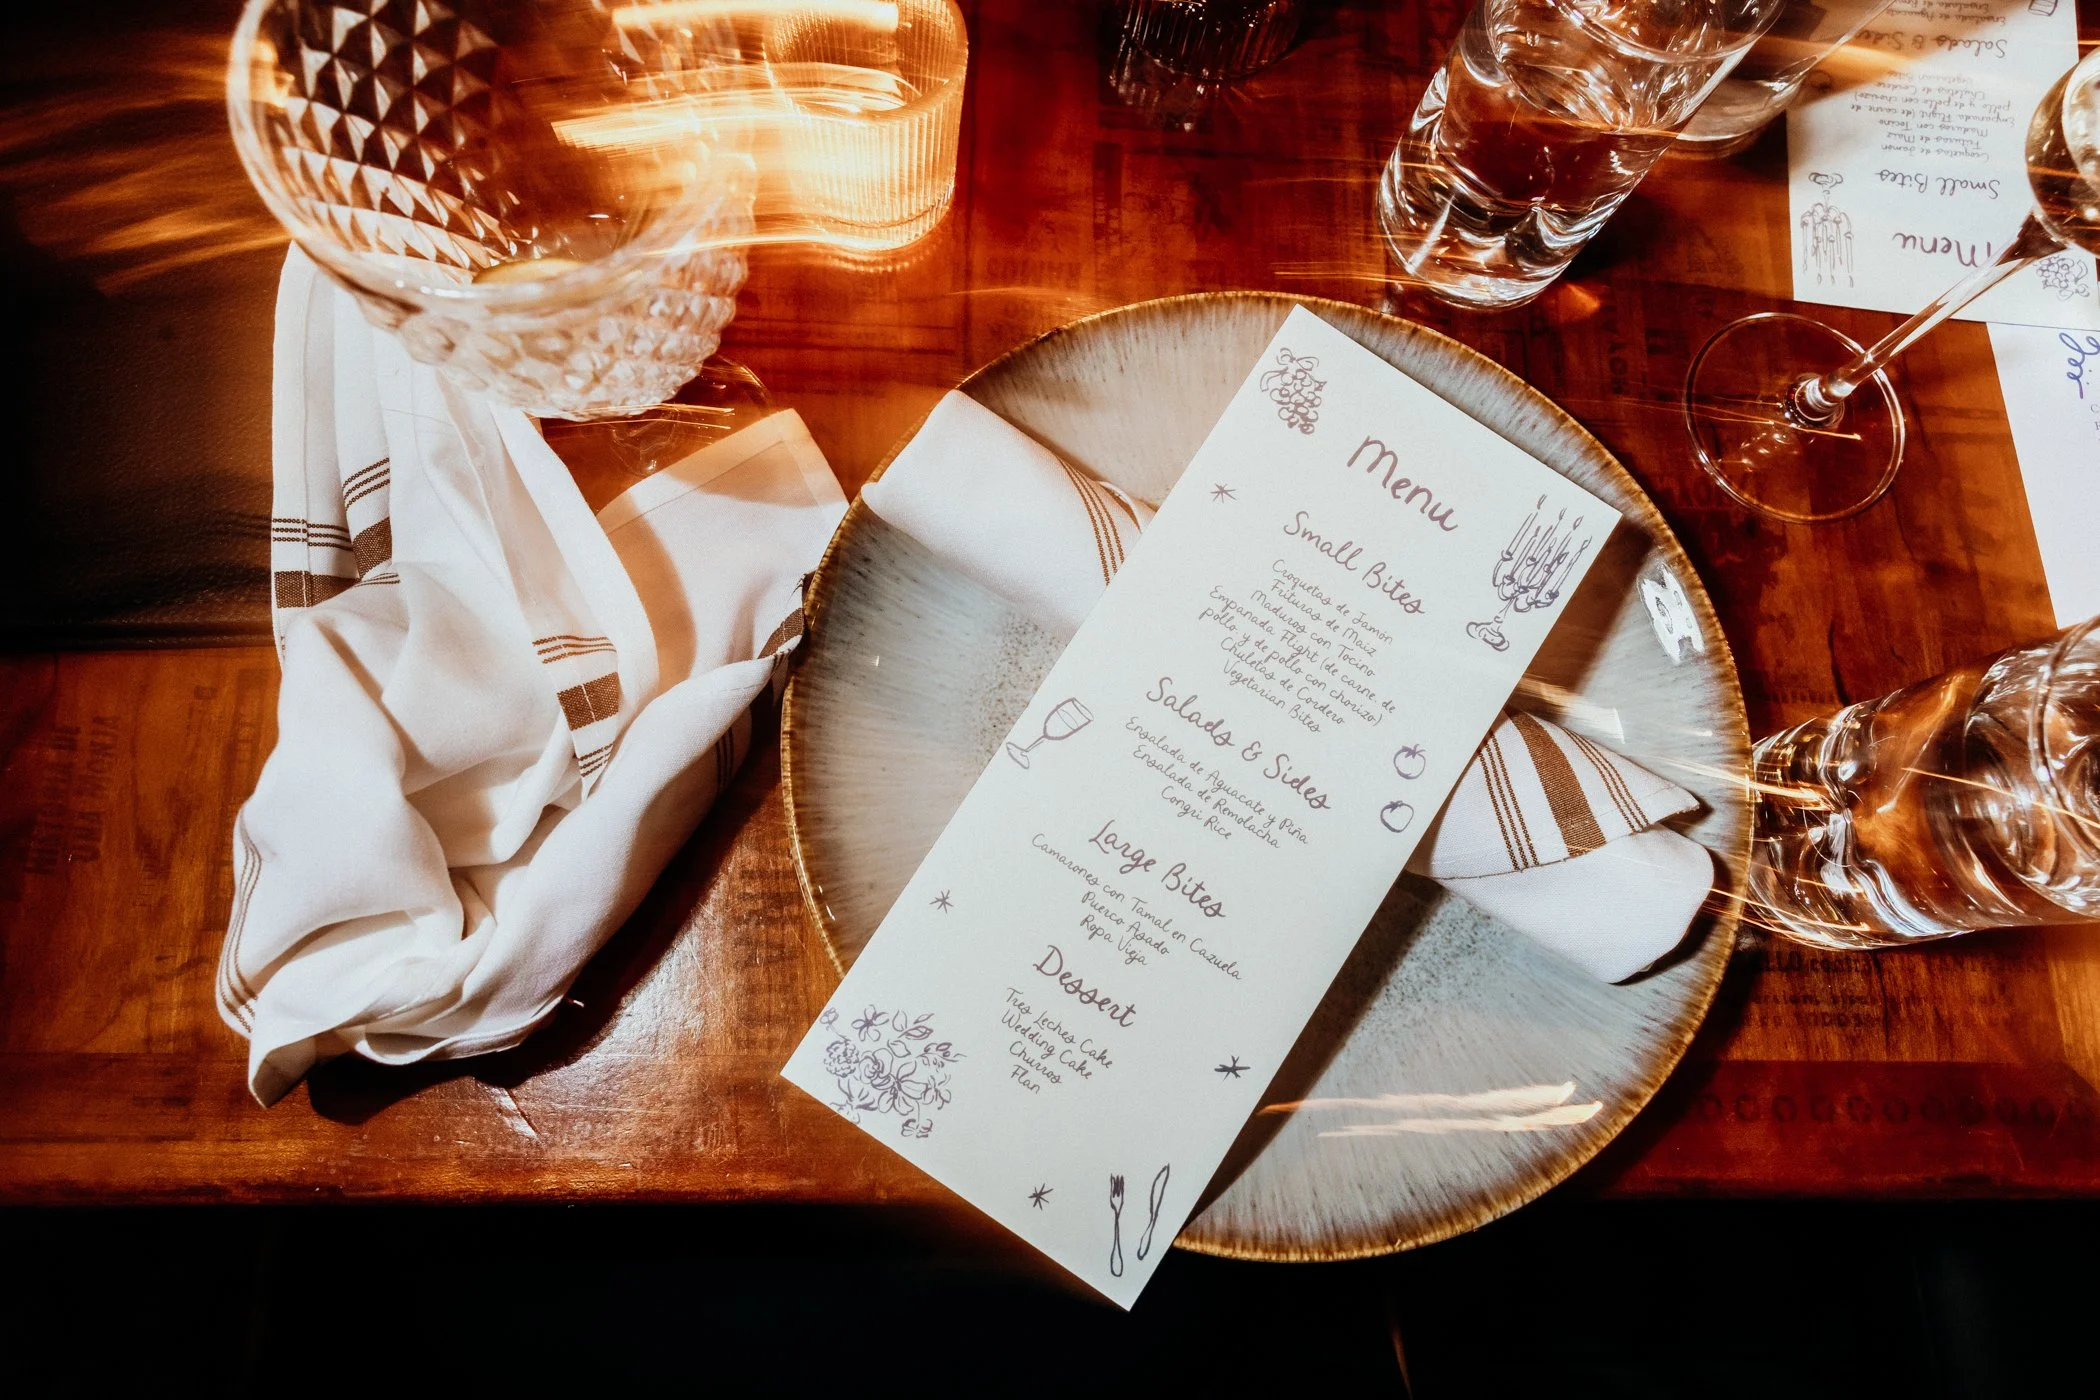 Menu
Small Bites
Croquetas de Jamón
Frituras de Maiz
Maduros con Tocino
Empanada Flight (de carne, de
pollo y de pollo con chorizo)
Chuletas de Cordero
Vegetarian Bites
Salads & Sides
Ensalada de Aguacate y Piña
Ensalada de Remolacha
Congri Rice
Large Bites
Camarones con Tamal en Cazuela
Puerco Asado
Ropa Vieja
Dessert
Tres Leches Cake
Wedding Cake
Churros
Flan
Menu
Small Bites
Croquetas de Jamón
Frituras de Maiz
Maduros con Tocino
Empanada Flight (de carne de
pollo y de pollo con chorizo)
Chuletas de Cordero
Vegetarian Bites
Salads & Sides
Ensalada de Aguacate